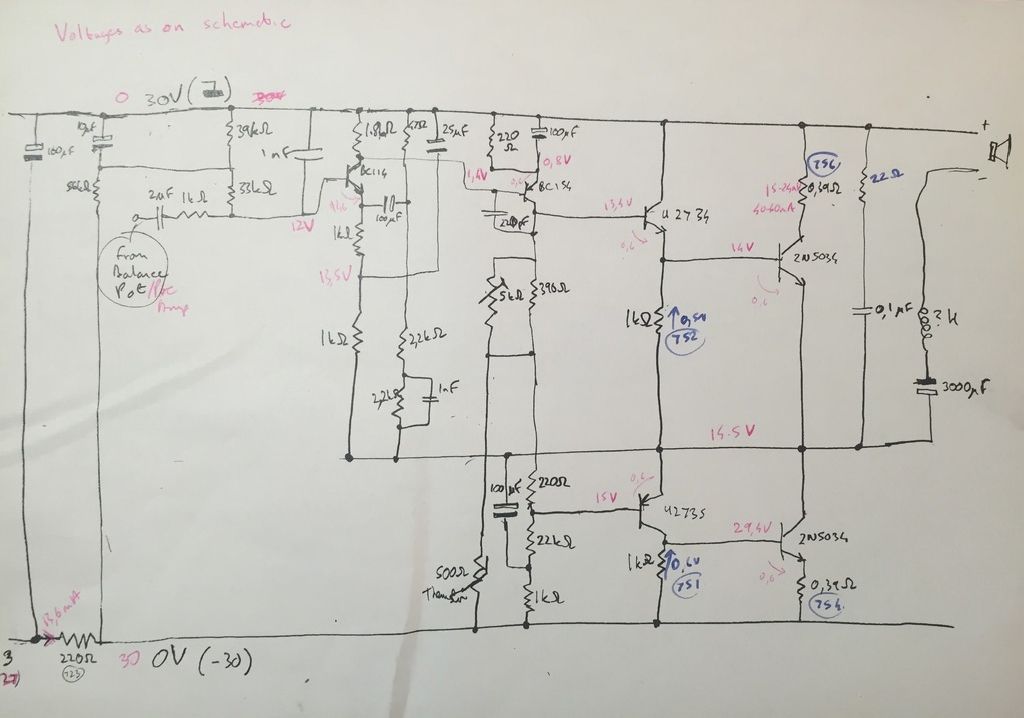 Voltages as on schematic
0 30V (
10µF
100µF
39kΩ
1nF
1.8kΩ
25µF
220
Ω
100µF
BC114
1,4V
0,8V
BC154
56kΩ
2µF
1kΩ
33kΩ
12V
100µF
1kΩ
13,5V
220pF
13,4V
U2734
0,6
756
15-24mV
40-60mA
0,39Ω
22Ω
14V
2N5034
0,6
From
Balance
Pot/Pre
Amp
5kΩ
390Ω
1kΩ
0,5V
752
0,1µF
? H
3000µF
1kΩ
2,2kΩ
2,2kΩ
1nF
14.5V
100
µF
220Ω
15V
0,6
U2735
22kΩ
29,4V
2N5034
500Ω
1kΩ
1kΩ
0,6V
751
0,6
0,39Ω
754
13,6mA
3
220Ω
723
30 0V (-30)
+
-